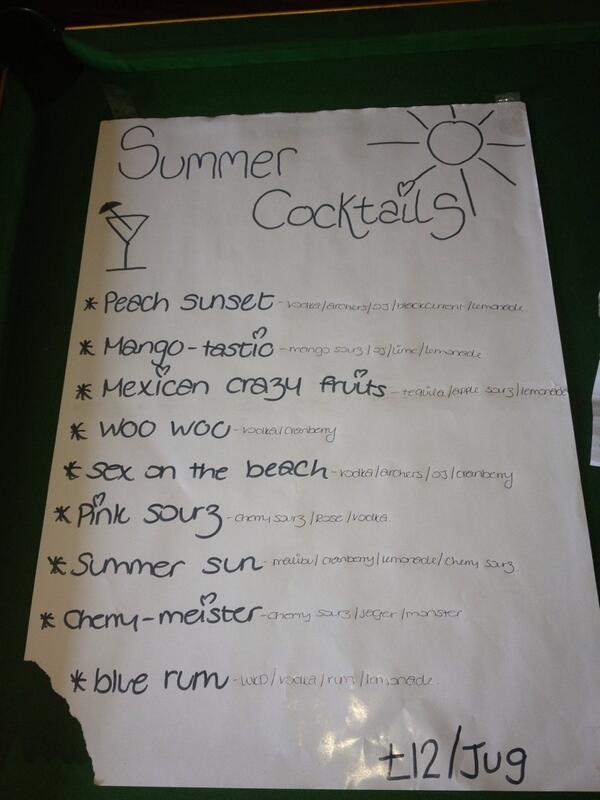 Summer
Cocktails
* Peach sunset - vodka/archers/oj/blackcurrent/lemonade
* Mango-tastic - mango sourz/oj/lime/lemonade
* Mexican crazy fruits - tequila/apple sourz/lemonade
* Woo Woo - vodka/cranberry
* Sex on the beach - vodka/archers/oj/cranberry
* Pink sourz - cherry sourz/Rose/vodka
* Summer sun - malibu/cranberry/lemonade/cherry sourz.
* Cherry-meister - cherry sourz/Jager/monster
* blue rum - WKD/vodka/rum/lemonade.
£12/Jug